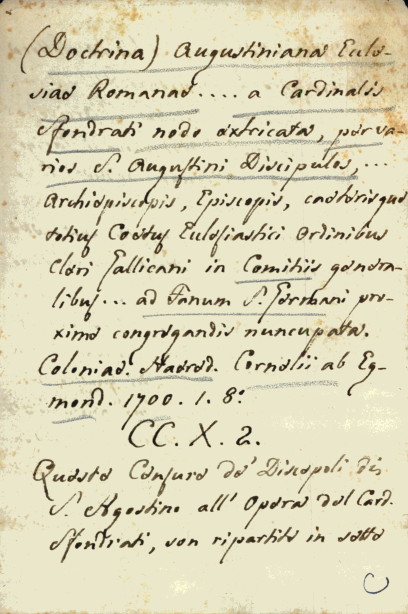 (Doctrina) Augustiniana Eccle-
siae Romanae .... a Cardinalis
Sfondrati nodo extricata, per va-
rios S. Augustini Discipulos, ...
Archiepiscopis, Episcopis, caeterisque
totius Coetus Eclesiastici Ordinibus
Cleri Gallicani in Comitiis genera-
libus ... ad Fanum S. Germani pro-
xime congregandis nuncupata.
Coloniae. Haered. Cornelii ab Eg-
mond. 1700. 1. 8.º
CC. X. 2.
Queste Censure de' Discepoli di
S. Agostino all' Opera del Card.
Sfondrati, son ripartite in sette
C